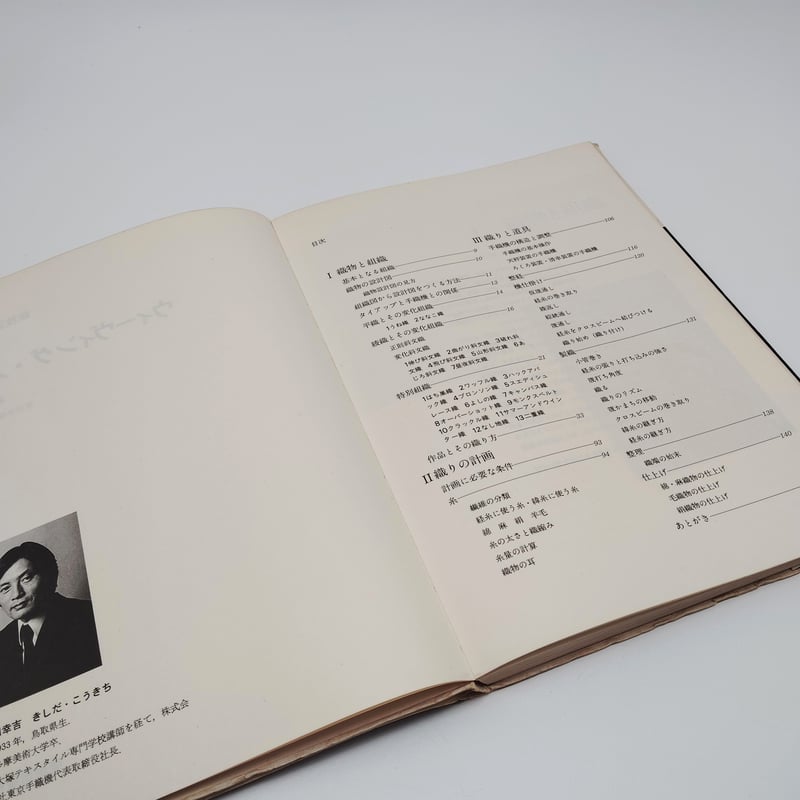 ウィーヴィング・
幸吉 きしだ・こうきち
933年，鳥取県生．
摩美術大学卒．
大塚テキスタイル専門学校講師を経て，株式会
社東京手織機代表取締役社長．
目次
I 織物と組織 9
基本となる組織 10
織物の設計図 11
織物設計図の見方
組織図から設計図をつくる方法 13
タイアップと手織機との関係 14
平織とその変化組織
1うね織 2ななこ織
綾織とその変化組織 16
正則斜文織
変化斜文織
1伸び斜文織 2曲がり斜文織 3破れ斜
文織 4飛び斜文織 5山形斜文織 6あ
じろ斜文織 7昼夜斜文織
特別組織 21
1はち巣織 2ワッフル織 3ハックアバ
ック織 4ブロンソン織 5スエディシュ
レース織 6よしの織 7キャンバス織
8オーバーショット織 9モンクスベルト
10クラックル織 11サマーアンドウイン
ター織 12なし地織 13二重織
作品とその織り方 33
II 織りの計画 93
計画に必要な条件 94
糸
繊維の分類
経糸に使う糸・緯糸に使う糸
綿 麻 絹 羊毛
糸の太さと織縮み
糸量の計算
織物の耳
III 織りと道具 106
手織機の構造と調整
手織機の基本操作
天秤装置の手織機
ろくろ装置・併用装置の手織機 116
整経 120
機仕掛け
仮筬通し
経糸の巻き取り
綾返し
綜絖通し
筬通し
経糸をクロスビームへ結びつける
織り始め（織り付け） 131
製織
小管巻き
経糸の張りと打ち込みの強さ
筬打ち角度
織る
織りのリズム
筬かまちの移動
クロスビームの巻き取り
緯糸の継ぎ方
経糸の継ぎ方 138
整理 140
織端の始末
仕上げ
綿・麻織物の仕上げ
毛織物の仕上げ
絹織物の仕上げ
あとがき